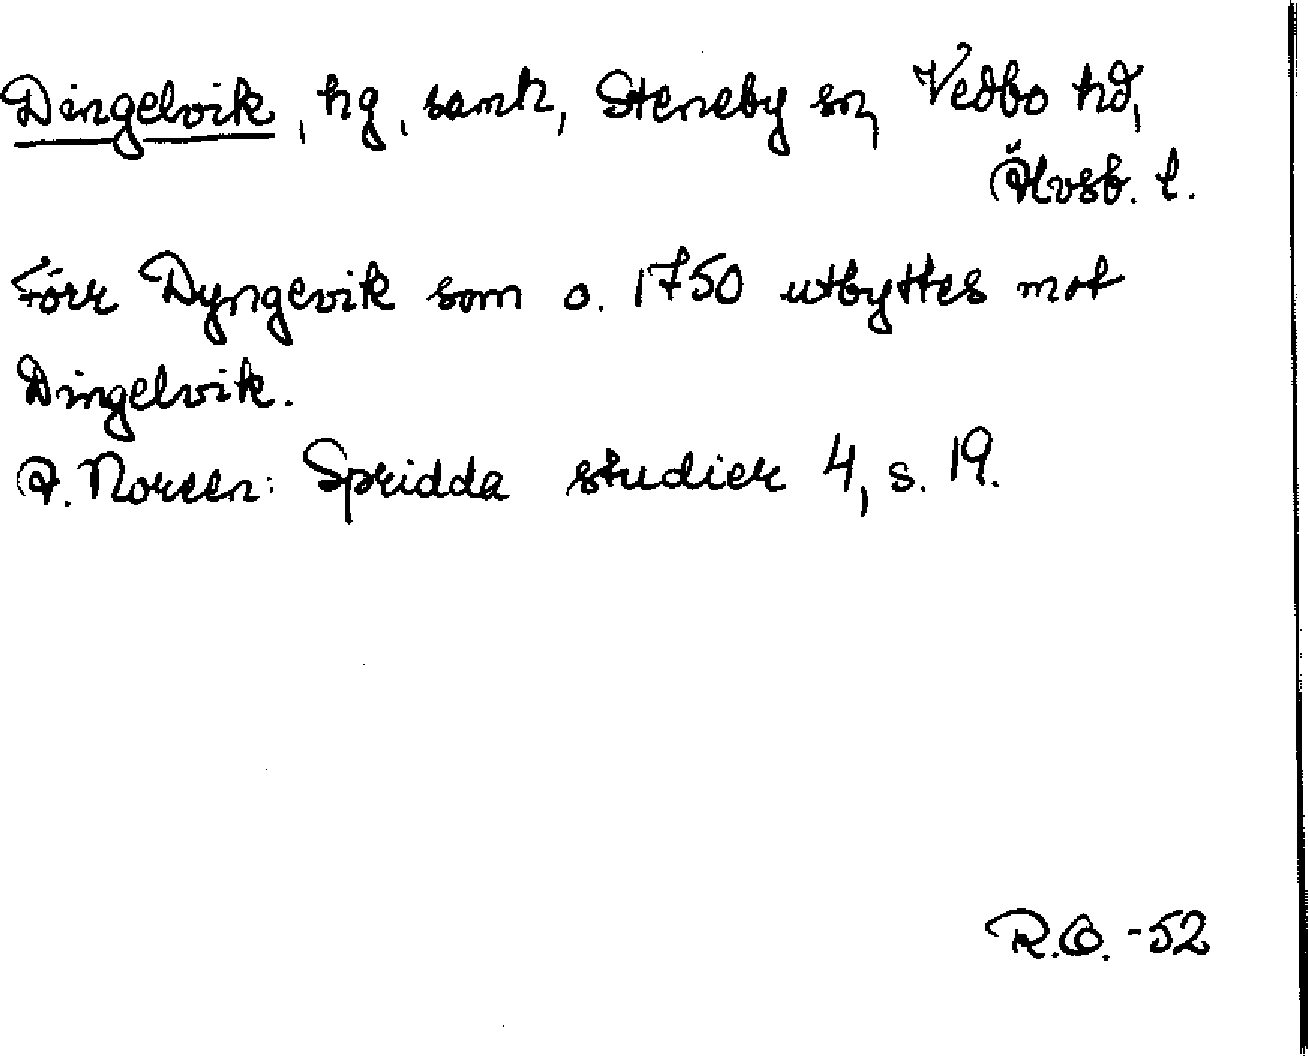 Dingelvik, hg, samh, Steneby sn, Vedbo hd,
Älvsb. l.
Förr Dyngevik som o. 1750 utbyttes mot
Dingelvik.
A. Noreen: Spridda studier 4, s. 19.
R.O. -52